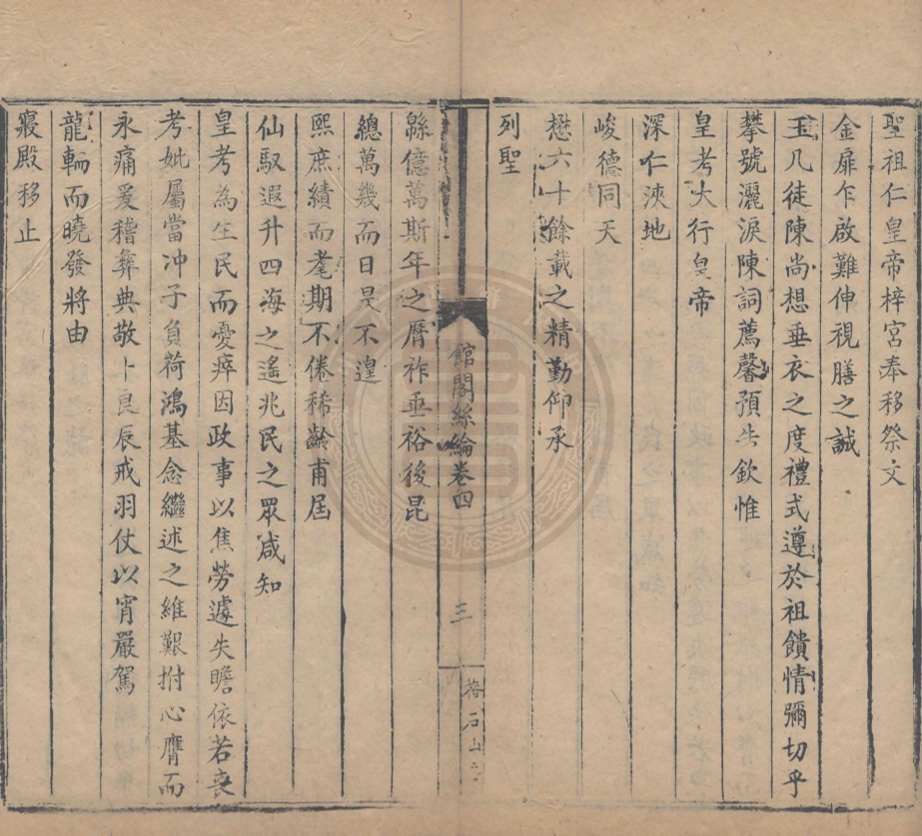 聖祖仁皇帝梓宮奉移祭文
金扉乍啟難伸視膳之誠
玉几徒陳尚想垂衣之度禮式遵於祖饋情彌切乎
攀號灑淚陳詞薦馨預告欽惟
皇考大行皇帝
深仁浹地
峻德同天
懋六十餘載之精勤仰承
列聖
館閣絲綸卷四
三
緜億萬斯年之厤祚垂裕後昆
總萬幾而日昃不遑
熙庶績而耄期不倦稀齡甫屆
仙馭遐升四海之遙兆民之眾咸知
皇考為生民而憂瘁因政事以焦勞遽失瞻依若喪
考妣屬當冲子負荷鴻基念繼述之維艱拊心膺而
永痛爰稽彝典敬卜良辰戒羽仗以宵嚴駕
龍輴而曉發將由
寢殿移止